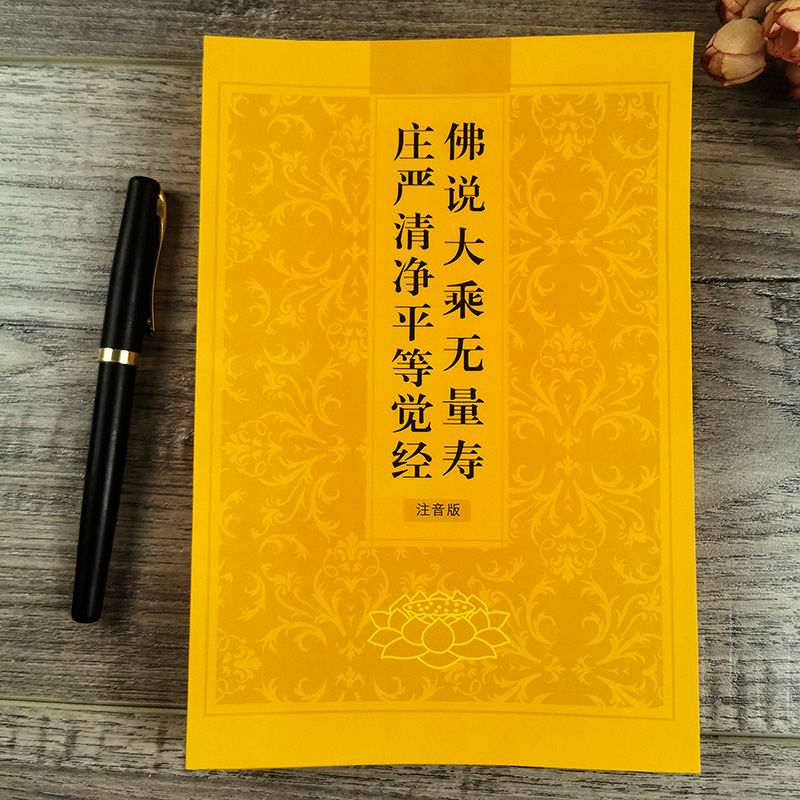 佛说大乘无量寿
庄严清净平等觉经
注音版